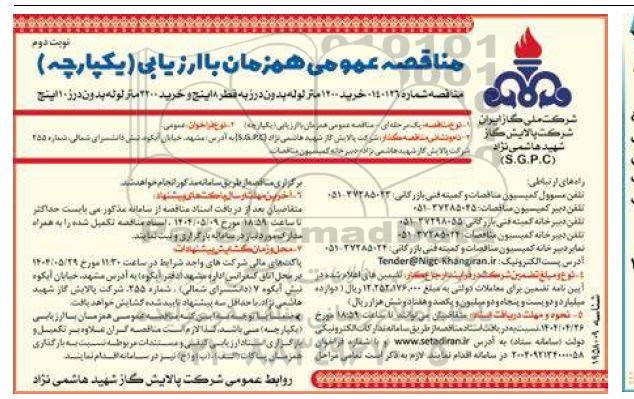 نوبت دوم
مناقصه عمومی همزمان با ارزیابی (یکپارچه)
مناقصه شماره ۱۴۰۰۱۳۶- خرید ۱۲۰۰ متر لوله بدون درز به قطر ۸ اینچ و خرید ۲۲۰۰ متر لوله بدون درز ۱۰ اینچ
شرکت ملی گاز ایران
شرکت پالایش گاز
شهید هاشمی نژاد
(S.G.P.C)
۱- نوع مناقصه: یک مرحله ای - مناقصه عمومی همزمان با ارزیابی (یکپارچه) ۲- نوع فراخوان: عمومی
۳- نام و نشانی مناقصه گذار: شرکت پالایش گاز شهید هاشمی نژاد (S.G.P.C) به آدرس: مشهد، خیابان آبکوه، نبش دانشسرای شمالی، شماره ۲۵۵
شرکت پالایش گاز شهید هاشمی نژاد - دبیرخانه کمیسیون مناقصات
راه های ارتباطی:
تلفن مسوول کمیسیون مناقصات و کمیته فنی بازرگانی: ۳۷۲۸۵۰۲۳-۰۵۱
تلفن دبیر کمیسیون مناقصات: ۳۷۲۸۵۰۲۵-۰۵۱
تلفن دبیرخانه کمیته فنی بازرگانی: ۳۷۲۹۸۰۵۵-۰۵۱
تلفن دبیرخانه کمیسیون مناقصات: ۳۷۲۸۵۰۲۴-۰۵۱
نمابر دبیرخانه کمیسیون مناقصات و کمیته فنی بازرگانی: ۳۷۲۸۵۰۲۴-۰۵۱
آدرس پست الکترونیک: Tender@Nigc-Khangiran.ir
۴- نوع و مبلغ تضمین شرکت در فرآیند ارجاع کار: تضمین های اعلام شده در
آیین نامه تضمین برای معاملات دولتی به مبلغ ۱۲.۲۵۲.۱۷۶.۰۰۰ ریال (دوازده
میلیارد و دویست و پنجاه و دو میلیون و یکصد و هفتاد و شش هزار ریال)
۵- نحوه و مهلت دریافت اسناد: متقاضیان می توانند تا ساعت ۱۸:۵۹ مورخ
۱۴۰۴/۰۴/۲۶ نسبت به دریافت اسناد مناقصه از طریق سامانه تدارکات الکترونیکی
دولت (سامانه ستاد) به آدرس www.setadiran.ir و با شماره فراخوان
۲۰۰۴۰۹۲۱۳۴۰۰۰۰۵۸ در سامانه اقدام نمایند. لازم به ذکر است تمام مراحل
برگزاری مناقصه از طریق سامانه مذکور انجام خواهد شد.
۶- آخرین مهلت ارسال پاکت های پیشنهاد:
متقاضیان بعد از دریافت اسناد مناقصه از سامانه مذکور می بایست حداکثر
تا ساعت ۱۸:۵۹ مورخ ۱۴۰۴/۰۵/۰۹ اسناد مناقصه تکمیل شده را به همراه
مدارک مورد نیاز در سامانه بارگزاری و ثبت نمایند.
۷- محل و زمان گشایش پیشنهادات:
پاکت های مالی شرکت های واجد شرایط در ساعت ۱۱:۳۰ مورخ ۱۴۰۴/۰۵/۲۹
در محل اتاق کنفرانس اداره مشهد (دفتر آبکوه) به آدرس مشهد، خیابان آبکوه
نبش آبکوه ۷ (دانشسرای شمالی)، شماره ۲۵۵، شرکت پالایش گاز شهید
هاشمی نژاد، با حداقل سه پیشنهاد تایید شده گشایش خواهد یافت.
عمومی همزمان با ارزیابی
(یکپارچه) می باشد، لذا لازم است مناقصه گران علاوه بر تکمیل و
بارگزاری اسناد ارزیابی کیفی و مستندات مربوطه نسبت به بارگذاری
همزمان پاکات (الف)، (ب) و (ج) نیز در سامانه اقدام نمایند.
شناسه ۱۹۵۸۰۰۹
روابط عمومی شرکت پالایش گاز شهید هاشمی نژاد